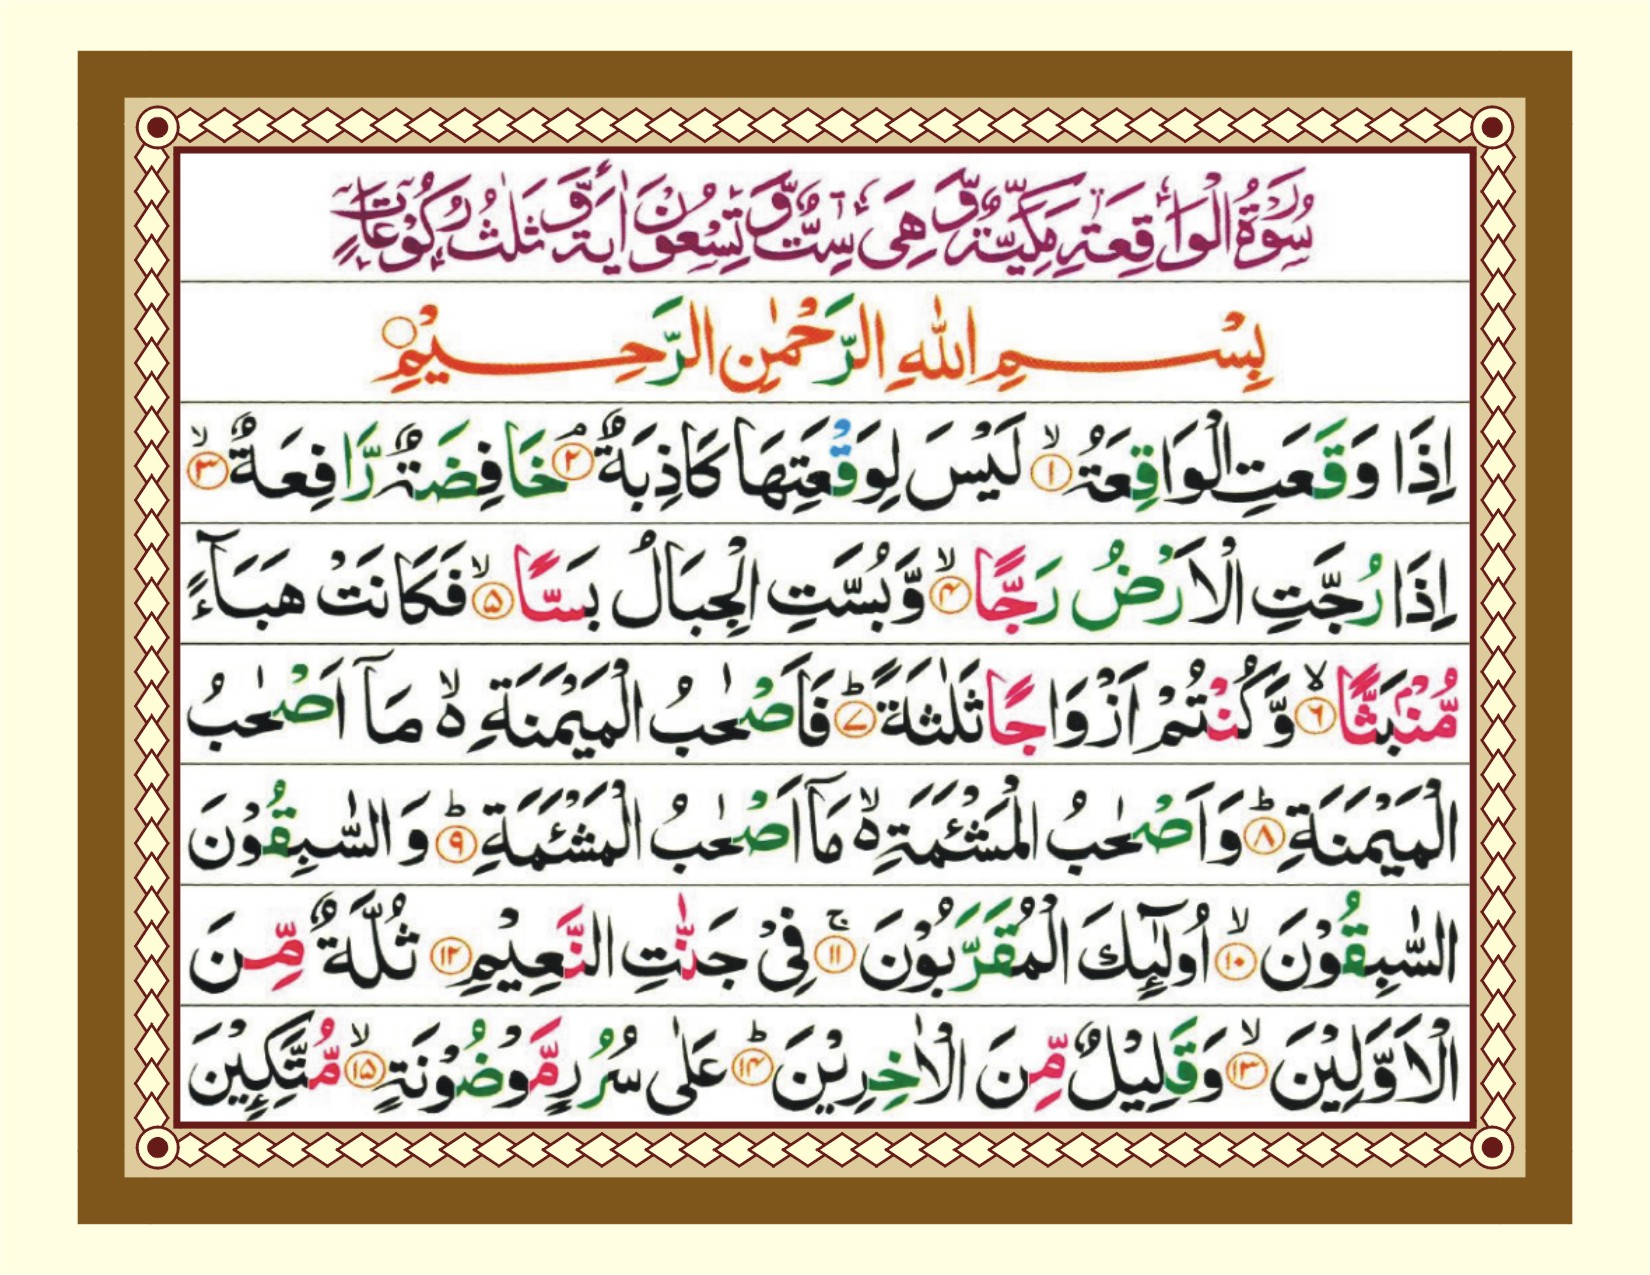 سُوْرَةُ الْوَاقِعَةِ مَكِّيَّةٌ وَّهِىَ سِتٌّ وَّتِسْعُوْنَ اٰيَةً وَّثَلٰثُ رُكُوْعَاتٍ
بِسْمِ اللّٰهِ الرَّحْمٰنِ الرَّحِيْمِ
اِذَا وَقَعَتِ الْوَاقِعَةُ ۙ﴿۱﴾ لَيْسَ لِوَقْعَتِهَا كَاذِبَةٌ ۘ﴿۲﴾ خَافِضَةٌ رَّافِعَةٌ ۙ﴿۳﴾
اِذَا رُجَّتِ الْاَرْضُ رَجًّا ۙ﴿۴﴾ وَّبُسَّتِ الْجِبَالُ بَسًّا ۙ﴿۵﴾ فَكَانَتْ هَبَآءً
مُّنْۢبَثًّا ۙ﴿۶﴾ وَّكُنْتُمْ اَزْوَاجًا ثَلٰثَةً ؕ﴿۷﴾ فَاَصْحٰبُ الْمَيْمَنَةِ ۙ۬ مَاۤ اَصْحٰبُ
الْمَيْمَنَةِ ؕ﴿۸﴾ وَاَصْحٰبُ الْمَشْئَمَةِ ۙ۬ مَاۤ اَصْحٰبُ الْمَشْئَمَةِ ؕ﴿۹﴾ وَالسّٰبِقُوْنَ
السّٰبِقُوْنَ ۙ﴿۱۰﴾ اُولٰٓئِكَ الْمُقَرَّبُوْنَ ۚ﴿۱۱﴾ فِىْ جَنّٰتِ النَّعِيْمِ ﴿۱۲﴾ ثُلَّةٌ مِّنَ
الْاَوَّلِيْنَ ۙ﴿۱۳﴾ وَقَلِيْلٌ مِّنَ الْاٰخِرِيْنَ ؕ﴿۱۴﴾ عَلٰى سُرُرٍ مَّوْضُوْنَةٍ ۙ﴿۱۵﴾ مُّتَّكِـِٕيْنَ